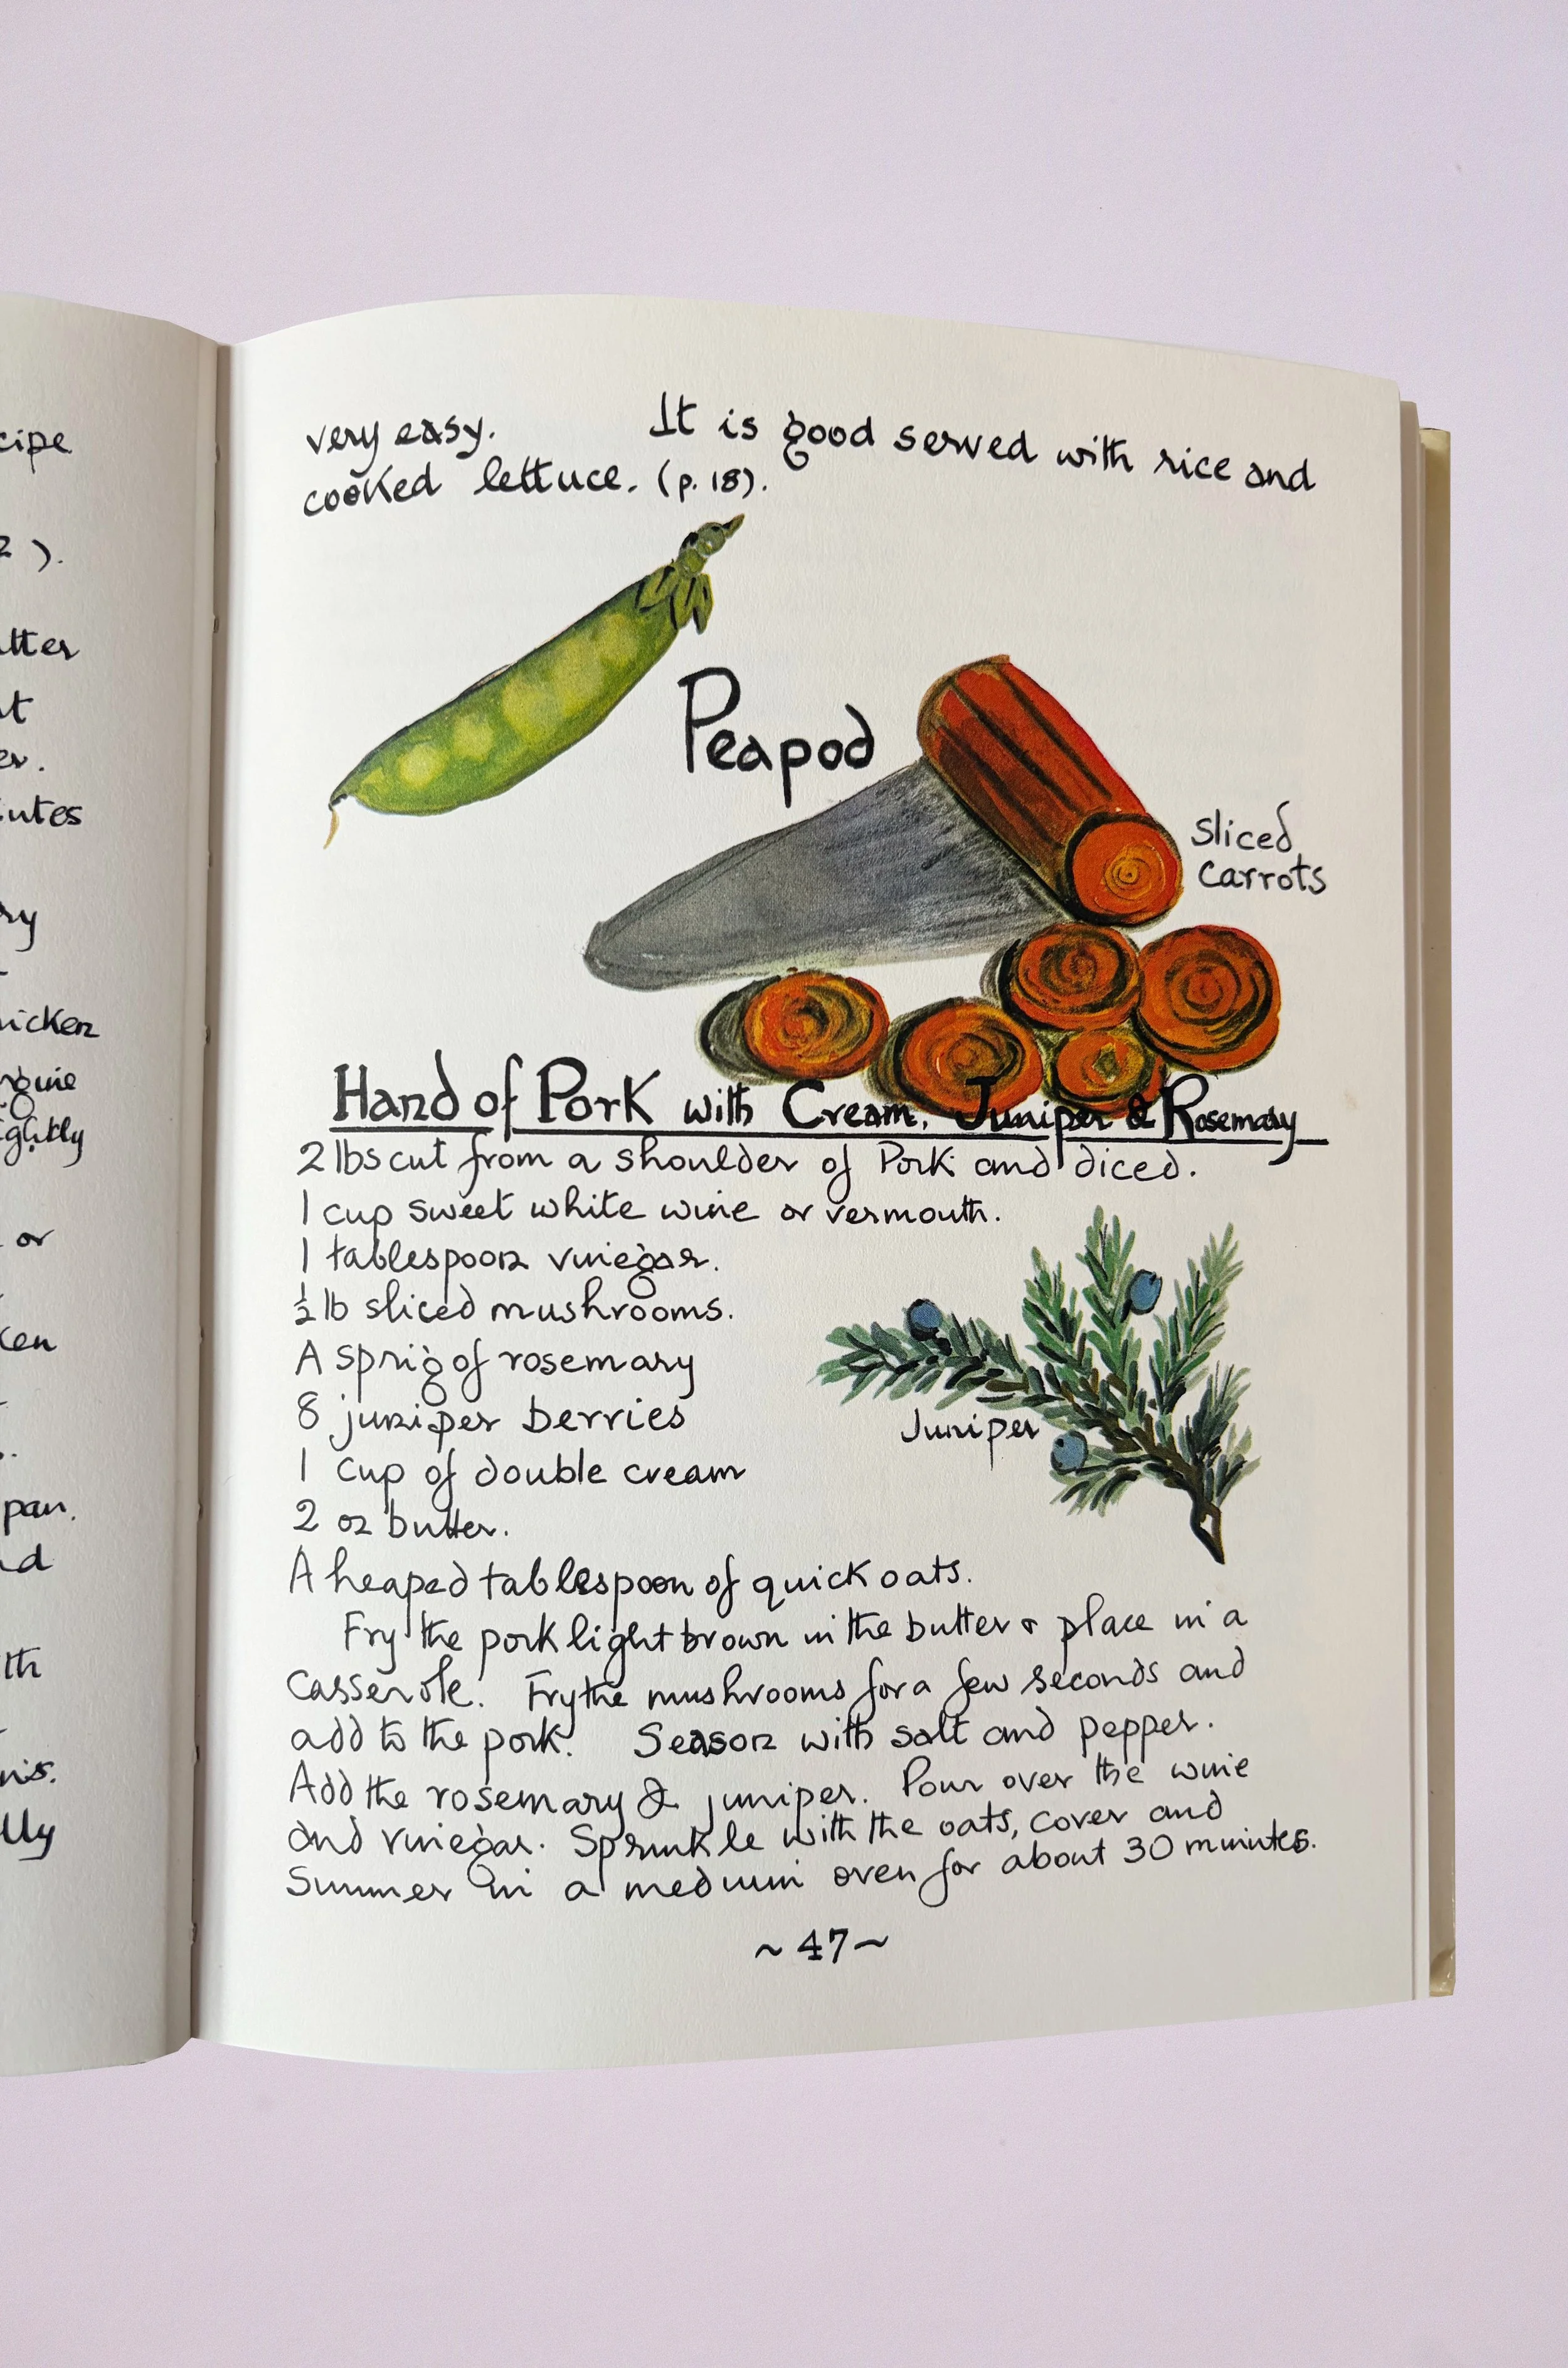 cipe
2 ).
er.
or
pan.
very easy. It is good served with rice and
cooked lettuce. (p. 18).
Peapod
Sliced
Carrots
Hand of Pork with Cream, Juniper & Rosemary
2 lbs cut from a shoulder of Pork and diced.
1 cup sweet white wine or vermouth.
1 tablespoon vinegar.
½ lb sliced mushrooms.
A sprig of rosemary
8 juniper berries
Juniper
1 cup of double cream
2 oz butter.
A heaped tablespoon of quick oats.
Fry the pork light brown in the butter & place in a
casserole. Fry the mushrooms for a few seconds and
add to the pork. Season with salt and pepper.
Add the rosemary & juniper. Pour over the wine
and vinegar. Sprinkle with the oats, cover and
Simmer in a medium oven for about 30 minutes.
~ 47 ~